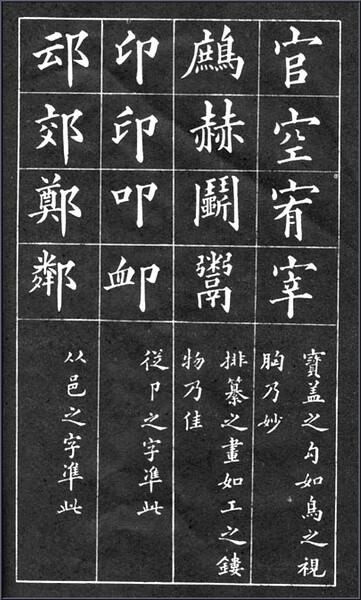 官空宥宰
寶盖之勾如鳥之視
胸乃妙
鷓赫鬭鬻
排纂之畫如工之鏤
物乃佳
印印叩卹
從卩之字凖此
䢵郊鄭鄰
从邑之字凖此